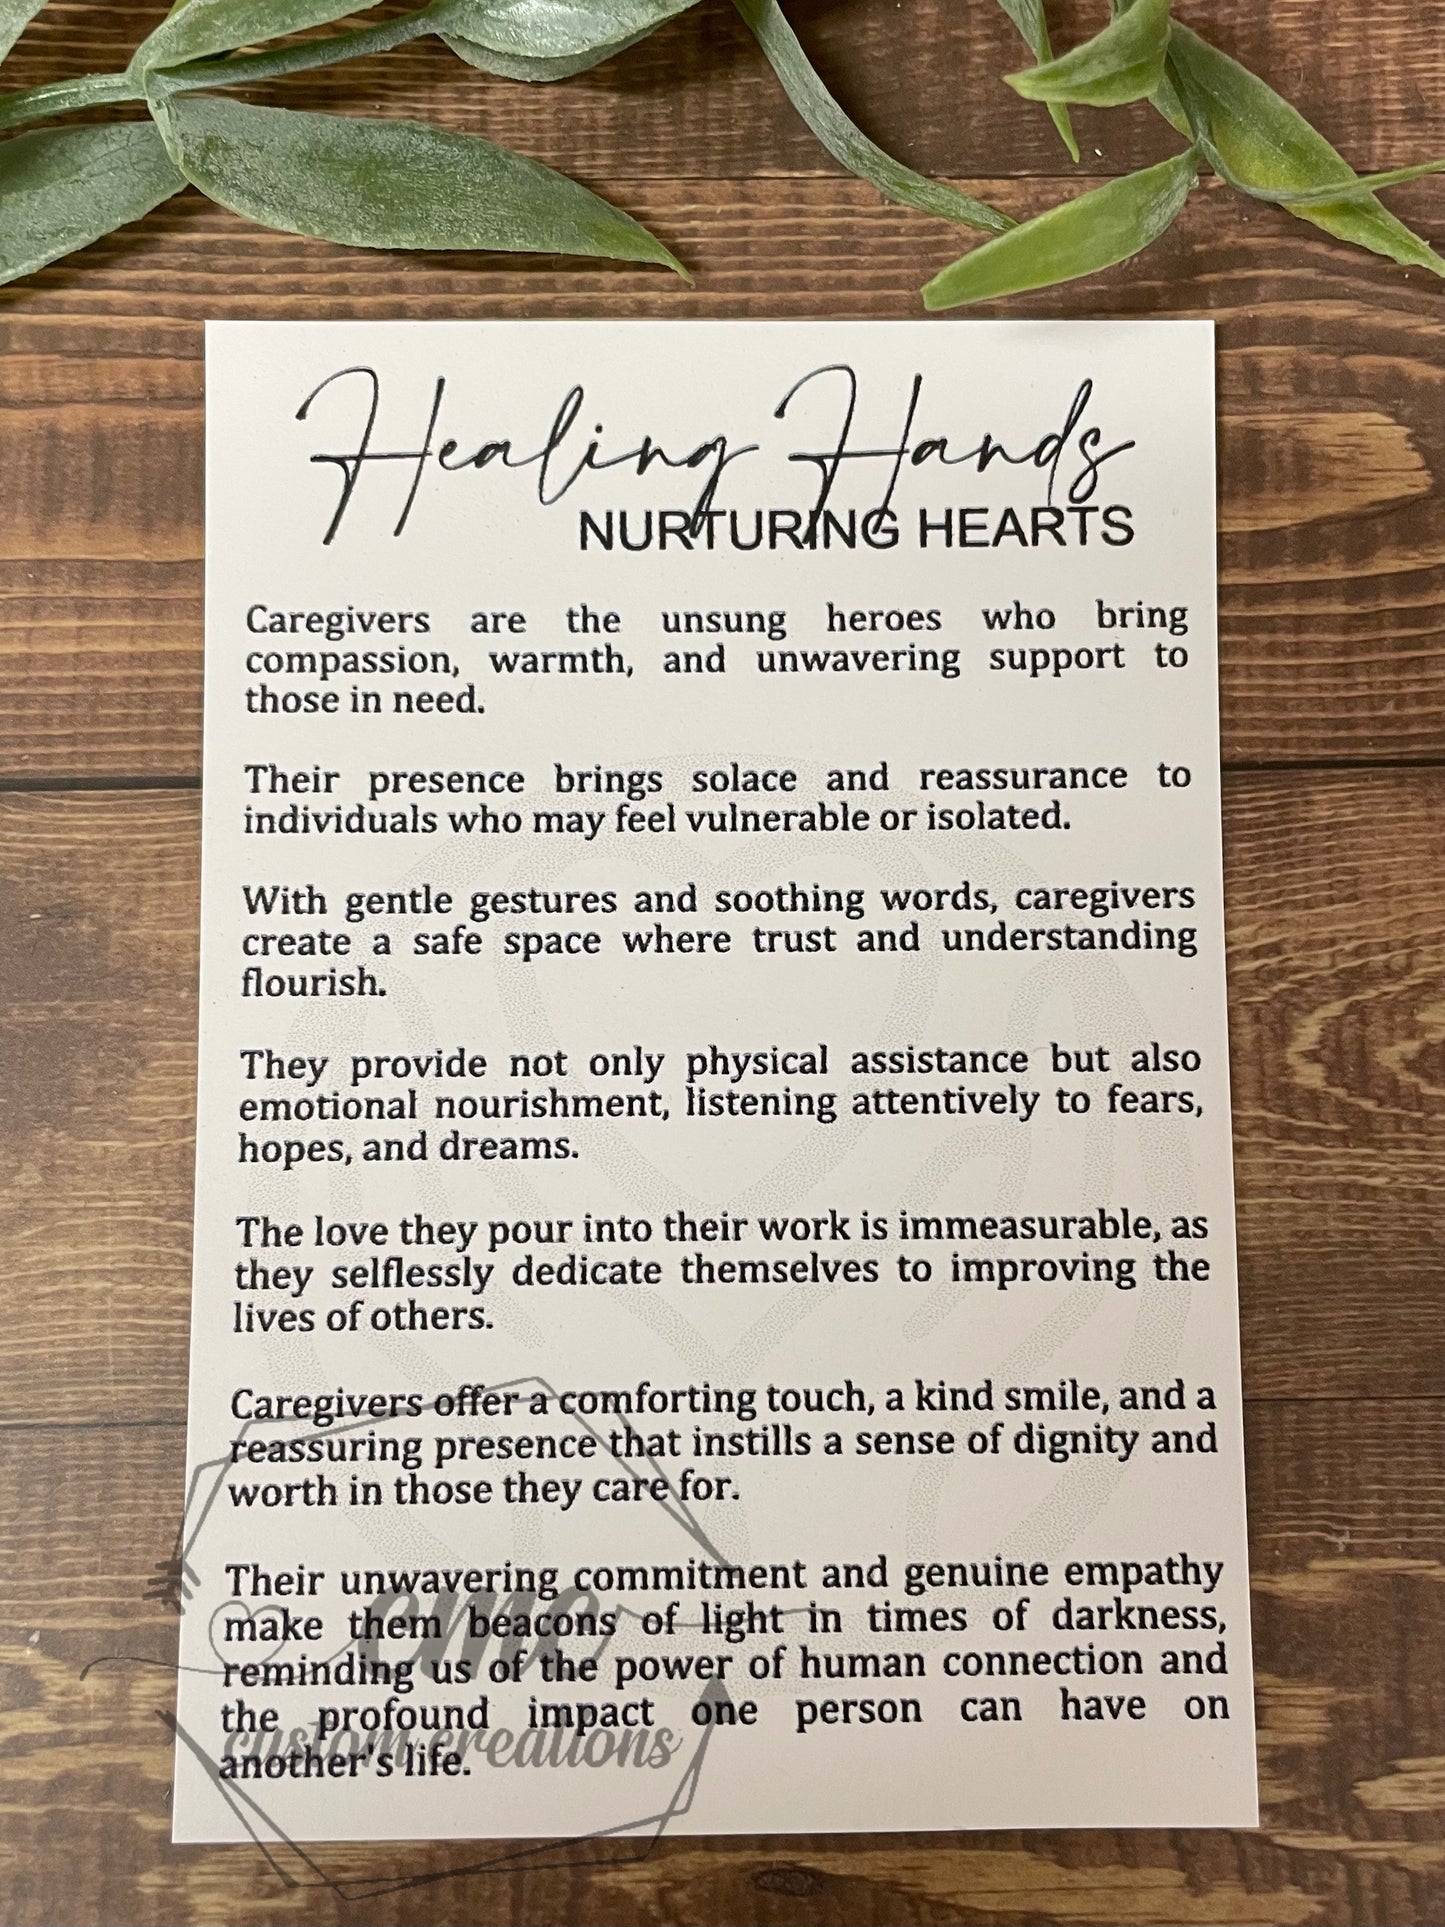 Healing Hands
NURTURING HEARTS
Caregivers are the unsung heroes who bring
compassion, warmth, and unwavering support to
those in need.
Their presence brings solace and reassurance to
individuals who may feel vulnerable or isolated.
With gentle gestures and soothing words, caregivers
create a safe space where trust and understanding
flourish.
They provide not only physical assistance but also
emotional nourishment, listening attentively to fears,
hopes, and dreams.
The love they pour into their work is immeasurable, as
they selflessly dedicate themselves to improving the
lives of others.
Caregivers offer a comforting touch, a kind smile, and a
reassuring presence that instills a sense of dignity and
worth in those they care for.
Their unwavering commitment and genuine empathy
make them beacons of light in times of darkness,
reminding us of the power of human connection and
the profound impact one person can have on
another's life.
cmc
custom creations